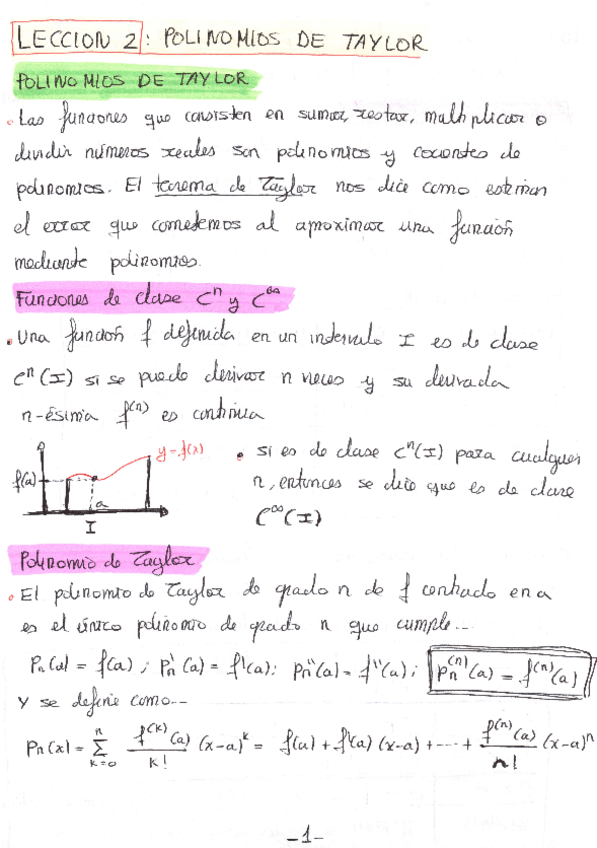 LECCION 2: POLINOMIOS DE TAYLOR
POLINOMIOS DE TAYLOR
• Las funciones que consisten en sumar, restar, multiplicar o
dividir números reales son polinomios y cocientes de
polinomios. El teorema de Taylor nos dice como estiman
el error que cometemos al aproximar una función
mediante polinomios.
Funciones de clase Cⁿ y C^∞
• Una función f definida en un intervalo I es de clase
Cⁿ(I) si se puede derivar n veces y su derivada
n-ésima f⁽ⁿ⁾ es continua
y=f(x)
f(a)
a
I
• si es de clase Cⁿ(I) para cualquier
n, entonces se dice que es de clase
C^∞(I)
Polinomio de Taylor
• El polinomio de Taylor de grado n de f centrado en a
es el único polinomio de grado n que cumple...
Pn(a) = f(a); Pn'(a) = f'(a); Pn''(a) = f''(a); Pn⁽ⁿ⁾(a) = f⁽ⁿ⁾(a)
Y se define como...
Pn(x) = Σ_{k=0}^{n} f⁽ᵏ⁾(a)/k! (x-a)ᵏ = f(a) + f'(a) (x-a) + ---- + f⁽ⁿ⁾(a)/n! (x-a)ⁿ
-1-